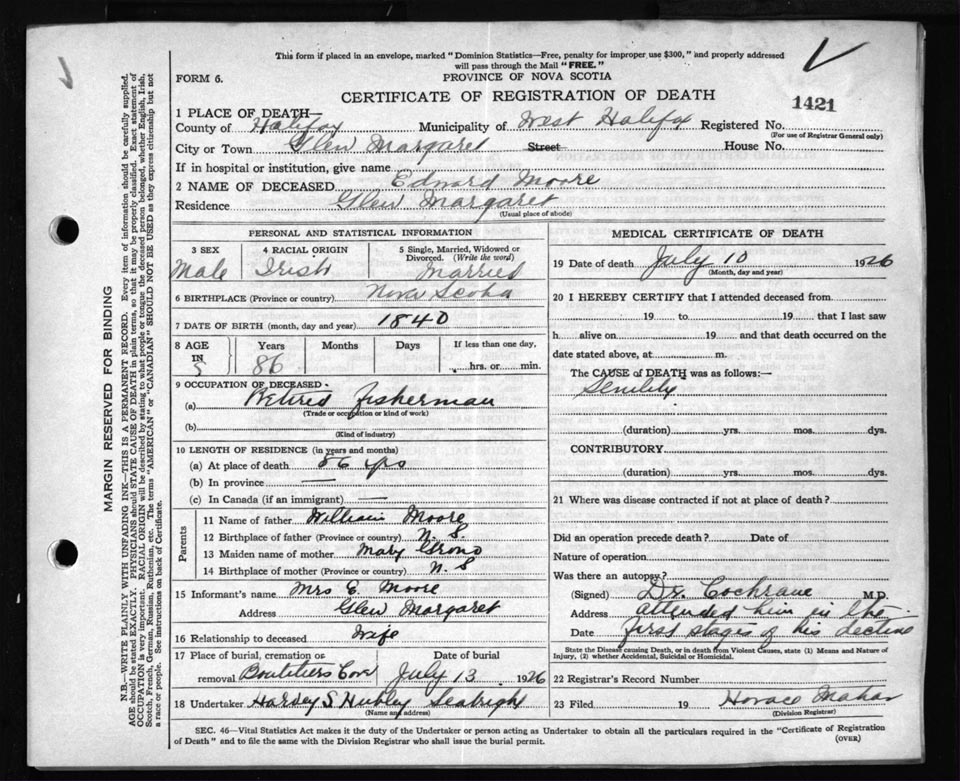 This form if placed in an envelope, marked "Dominion Statistics—Free, penalty for improper use $300," and properly addressed
will pass through the Mail "FREE."
FORM 6.
PROVINCE OF NOVA SCOTIA
CERTIFICATE OF REGISTRATION OF DEATH
1421
1 PLACE OF DEATH—
County of Halifax Municipality of West Halifax Registered No.
(For use of Registrar General only)
City or Town Glen Margaret Street House No.
If in hospital or institution, give name
2 NAME OF DECEASED Edward Moore
Residence Glen Margaret
(Usual place of abode)
PERSONAL AND STATISTICAL INFORMATION
3 SEX 4 RACIAL ORIGIN 5 Single, Married, Widowed or
Divorced. (Write the word)
Male Irish Married
6 BIRTHPLACE (Province or country) Nova Scotia
7 DATE OF BIRTH (month, day and year) 1840
8 AGE IN Years Months Days If less than one day,
86 hrs. or min.
9 OCCUPATION OF DECEASED
(a) Retired fisherman
(Trade or occupation or kind of work)
(b)
(Kind of industry)
10 LENGTH OF RESIDENCE (in years and months)
(a) At place of death 56 yrs
(b) In province —
(c) In Canada (if an immigrant) —
Parents
11 Name of father William Moore
12 Birthplace of father (Province or country) N. S.
13 Maiden name of mother Mary
14 Birthplace of mother (Province or country) N. S
15 Informant's name Mrs E. Moore
Address Glen Margaret
16 Relationship to deceased wife
17 Place of burial, cremation or Date of burial
removal Boutiliers Cov July 13 1926
18 Undertaker Harvey S. Hubley Seabright
(Name and address)
MEDICAL CERTIFICATE OF DEATH
19 Date of death July 10 1926
(Month, day and year)
20 I HEREBY CERTIFY that I attended deceased from
19 to 19 that I last saw
h alive on 19 and that death occurred on the
date stated above, at m.
The CAUSE of DEATH was as follows:—
Senility
(duration) yrs. mos. dys.
CONTRIBUTORY
(duration) yrs. mos. dys.
21 Where was disease contracted if not at place of death?
Did an operation precede death? Date of
Nature of operation
Was there an autopsy?
(Signed) Dr. Cochrane M.D.
Address attended him in the
Date first stages of his decline
State the Disease causing Death, or in death from Violent Causes, state (1) Means and Nature of
Injury, (2) whether Accidental, Suicidal or Homicidal.
22 Registrar's Record Number
23 Filed 19 Horace Mahar
(Division Registrar)
SEC. 46—Vital Statistics Act makes it the duty of the Undertaker or person acting as Undertaker to obtain all the particulars required in the "Certificate of Registration
of Death" and to file the same with the Division Registrar who shall issue the burial permit.
(OVER)
MARGIN RESERVED FOR BINDING
N.B.—WRITE PLAINLY WITH UNFADING INK—THIS IS A PERMANENT RECORD. Every item of information should be carefully supplied.
AGE should be stated EXACTLY. PHYSICIANS should STATE CAUSE OF DEATH in plain terms, so that it may be properly classified. Exact statement of
OCCUPATION is very important. RACIAL ORIGIN will be described by stating to what people or tongue the deceased person belonged, whether English, Irish,
Scotch, French, German, Russian, Ruthenian, etc. The terms "AMERICAN" or "CANADIAN" SHOULD NOT BE USED as they express citizenship but not
a race or people. See instructions on back of Certificate.